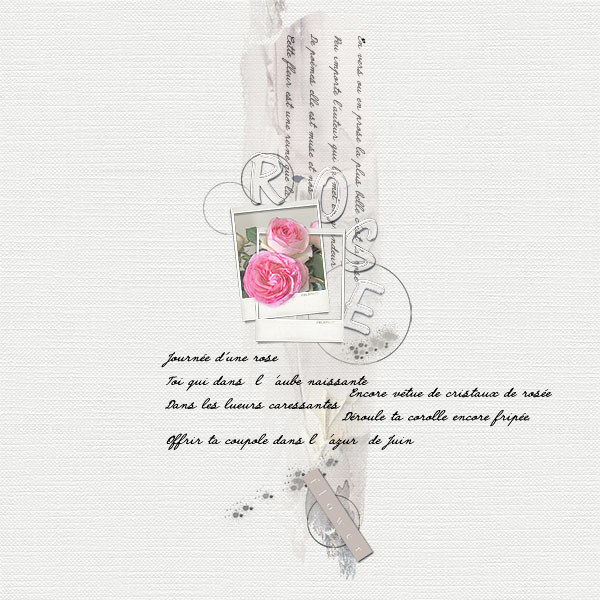 En vers ou en prose la plus belle c'est
Peu importe l'auteur qui
De poèmes elle est muse et
Cette fleur est une reine que la
ROSE
Journée d'une rose
Toi qui dans l 'aube naissante
Encore vétue de cristaux de rosée
Dans les lueurs caressantes
Déroule ta corolle encore fripée
Offrir ta coupole dans l 'azur de Juin
flower